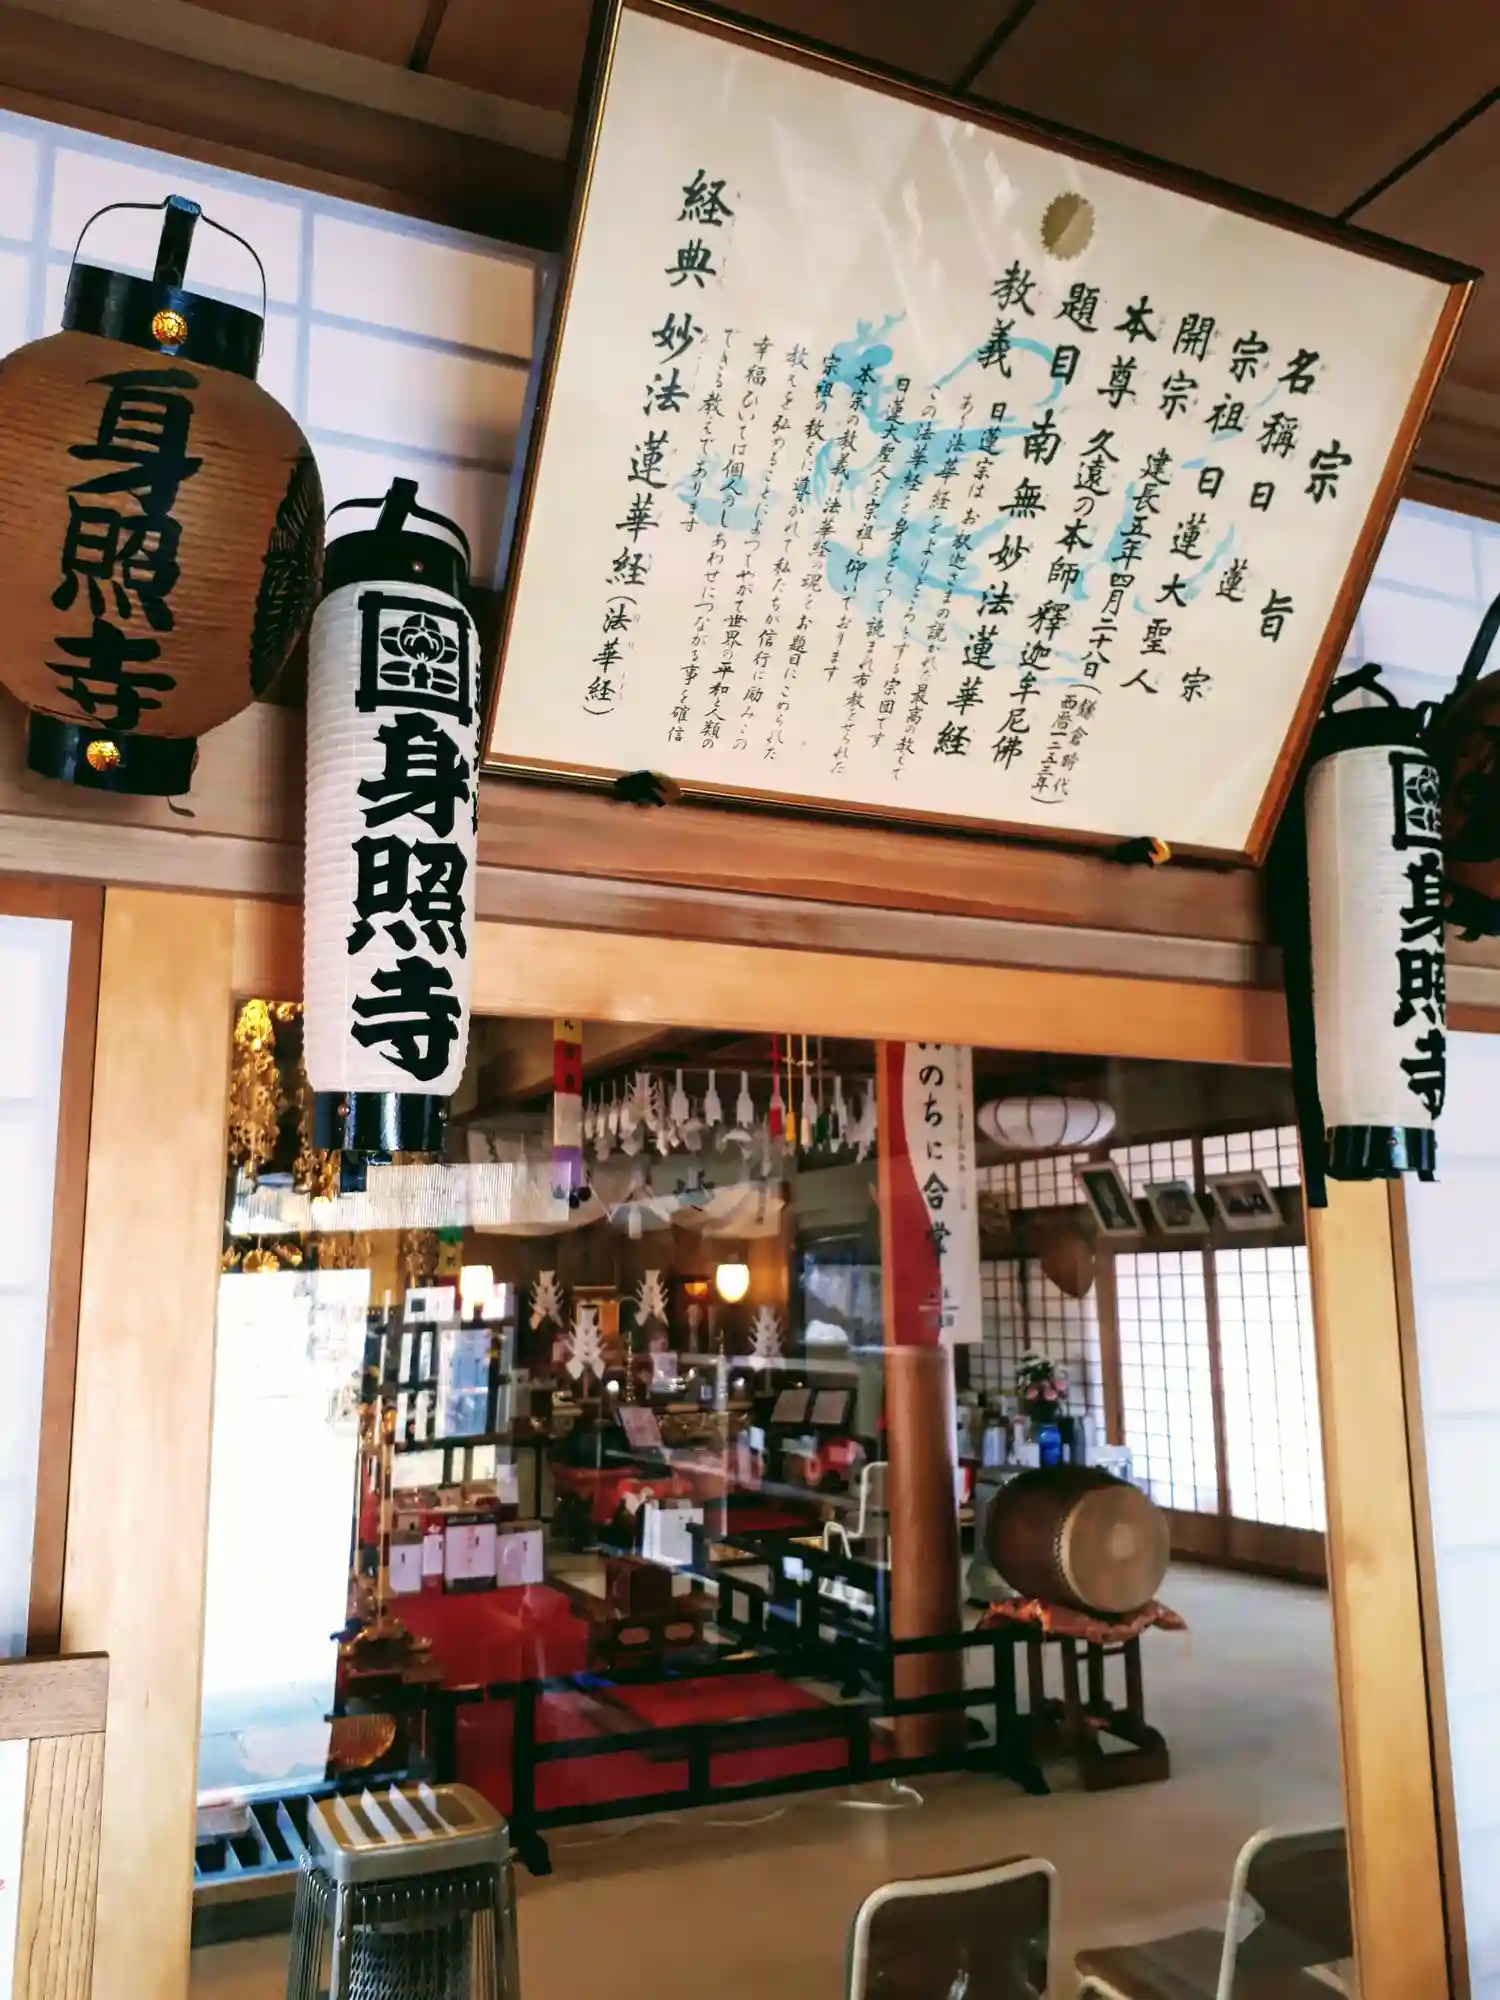 宗旨
名稱 日蓮宗
宗祖 日蓮大聖人
開宗 建長五年四月二十八日(鎌倉時代 西暦一二五三年)
本尊 久遠の本師釋迦牟尼佛
題目 南無妙法蓮華経
教義 日蓮宗はお釈迦さまの説かれた最高の教えで
ある法華経をよりどころとする宗団です
この法華経を身をもって読まれ布教せられた
日蓮大聖人を宗祖と仰いでおります
本宗の教義は法華経の魂とお題目にこめられた
宗祖の教えに導かれて私たちが信行に励みこの
教えを弘めることによってやがて世界の平和と人類の
幸福ひいては個人のしあわせにつながる事を確信
できる教えであります
経典 妙法蓮華経(法華経)
身照寺
身照寺
身照寺
のちに合掌